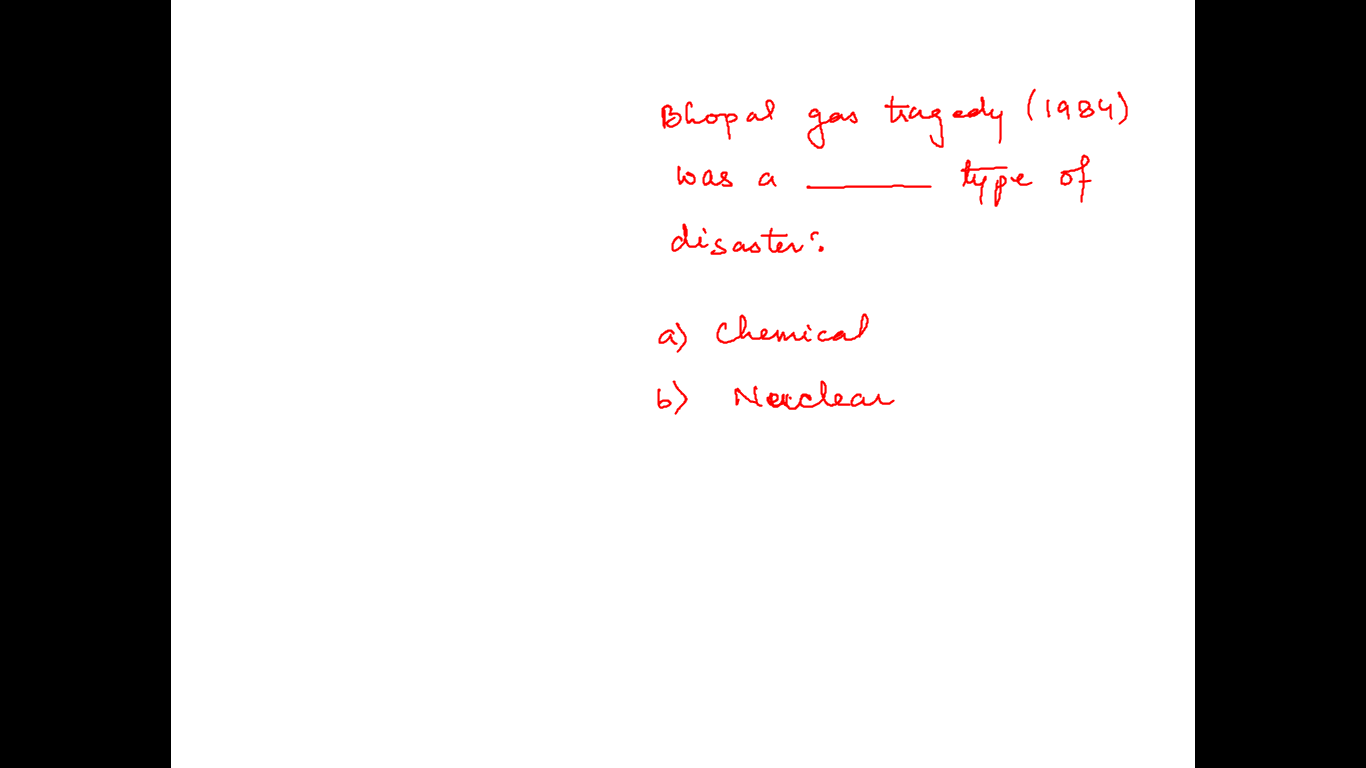 Bhopal gas tragedy (1984)
was a ______ type of
disaster:
a) Chemical
b) Nuclear